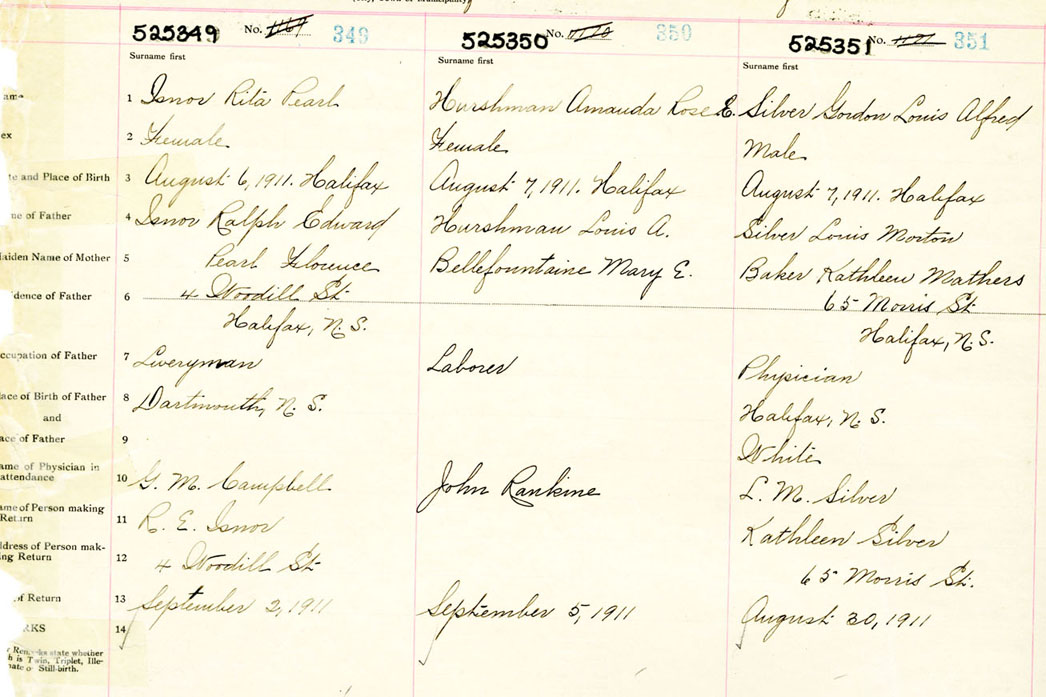 525349 No. 349
525350 No. 350
525351 No. 351
Surname first
Surname first
Surname first
ame 1 Isnor Rita Pearl
Hurshman Amanda Rose E.
Silver Gordon Louis Alfred
ex 2 Female
Female
Male
te and Place of Birth 3 August 6, 1911. Halifax
August 7, 1911. Halifax
August 7, 1911. Halifax
me of Father 4 Isnor Ralph Edward
Hurshman Louis A.
Silver Louis Morton
aiden Name of Mother 5 Pearl Florence
Bellefountaine Mary E.
Baker Kathleen Mathers
idence of Father 6 4 Woodill St.
Halifax, N. S.
65 Morris St.
Halifax, N. S.
ccupation of Father 7 Liveryman
Laborer
Physician
lace of Birth of Father 8 Dartmouth, N. S.
Halifax, N. S.
and
ace of Father 9
White
ame of Physician in
attendance 10 G. M. Campbell
John Rankine
L. M. Silver
ame of Person making
Return 11 R. E. Isnor
Kathleen Silver
ddress of Person mak-
ing Return 12 4 Woodill St.
65 Morris St.
of Return 13 September 2, 1911
September 5, 1911
August 30, 1911
RKS 14
state whether
h is Twin, Triplet, Ille-
Still-birth.